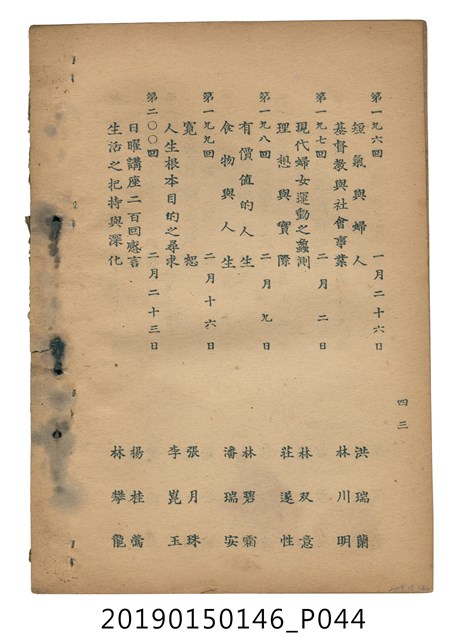 第一九六回　一月二十六日
短氣與婦人　洪瑞蘭
基督教與社會事業　林川明
第一九七回　二月二日
現代婦女運動之蠡測　林双意
理想與實際　莊遂性
第一九八回　二月九日
有價值的人生　林碧霜
食物與人生　潘瑞安
第一九九回　二月十六日
寬恕　張月珠
人生根本目的之尋求　李崑玉
第二〇〇回　二月二十三日
日曜講座二百回感言　楊桂鶯
生活之把持與深化　林攀龍
四三
20190150146_P044